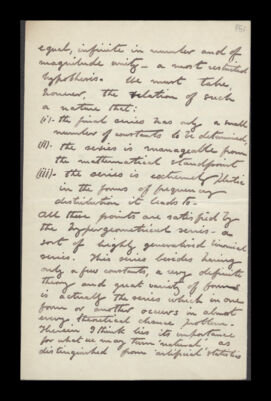 equal, infinite in number and of
magnitude unity – a most restricted
hypothesis. We must take,
however, the relation of such
a nature that:
(i). the final series has only a small
number of constants to be determined,
(ii). the series is manageable from
the mathematical standpoint
(iii). the series is extremely elastic
in the forms of frequency
distribution it leads to.
All these points are satisfied by
the hypergeometrical series – a
sort of highly generalised binomial
series. This series besides having
only a few constants, a very definite
theory and great variety of forms
is actually the series which in one
form or another occurs in almost
every theoretical chance problem.
Herein I think lies its importance
for what we may term 'natural', as
distinguished from 'artificial' statistics